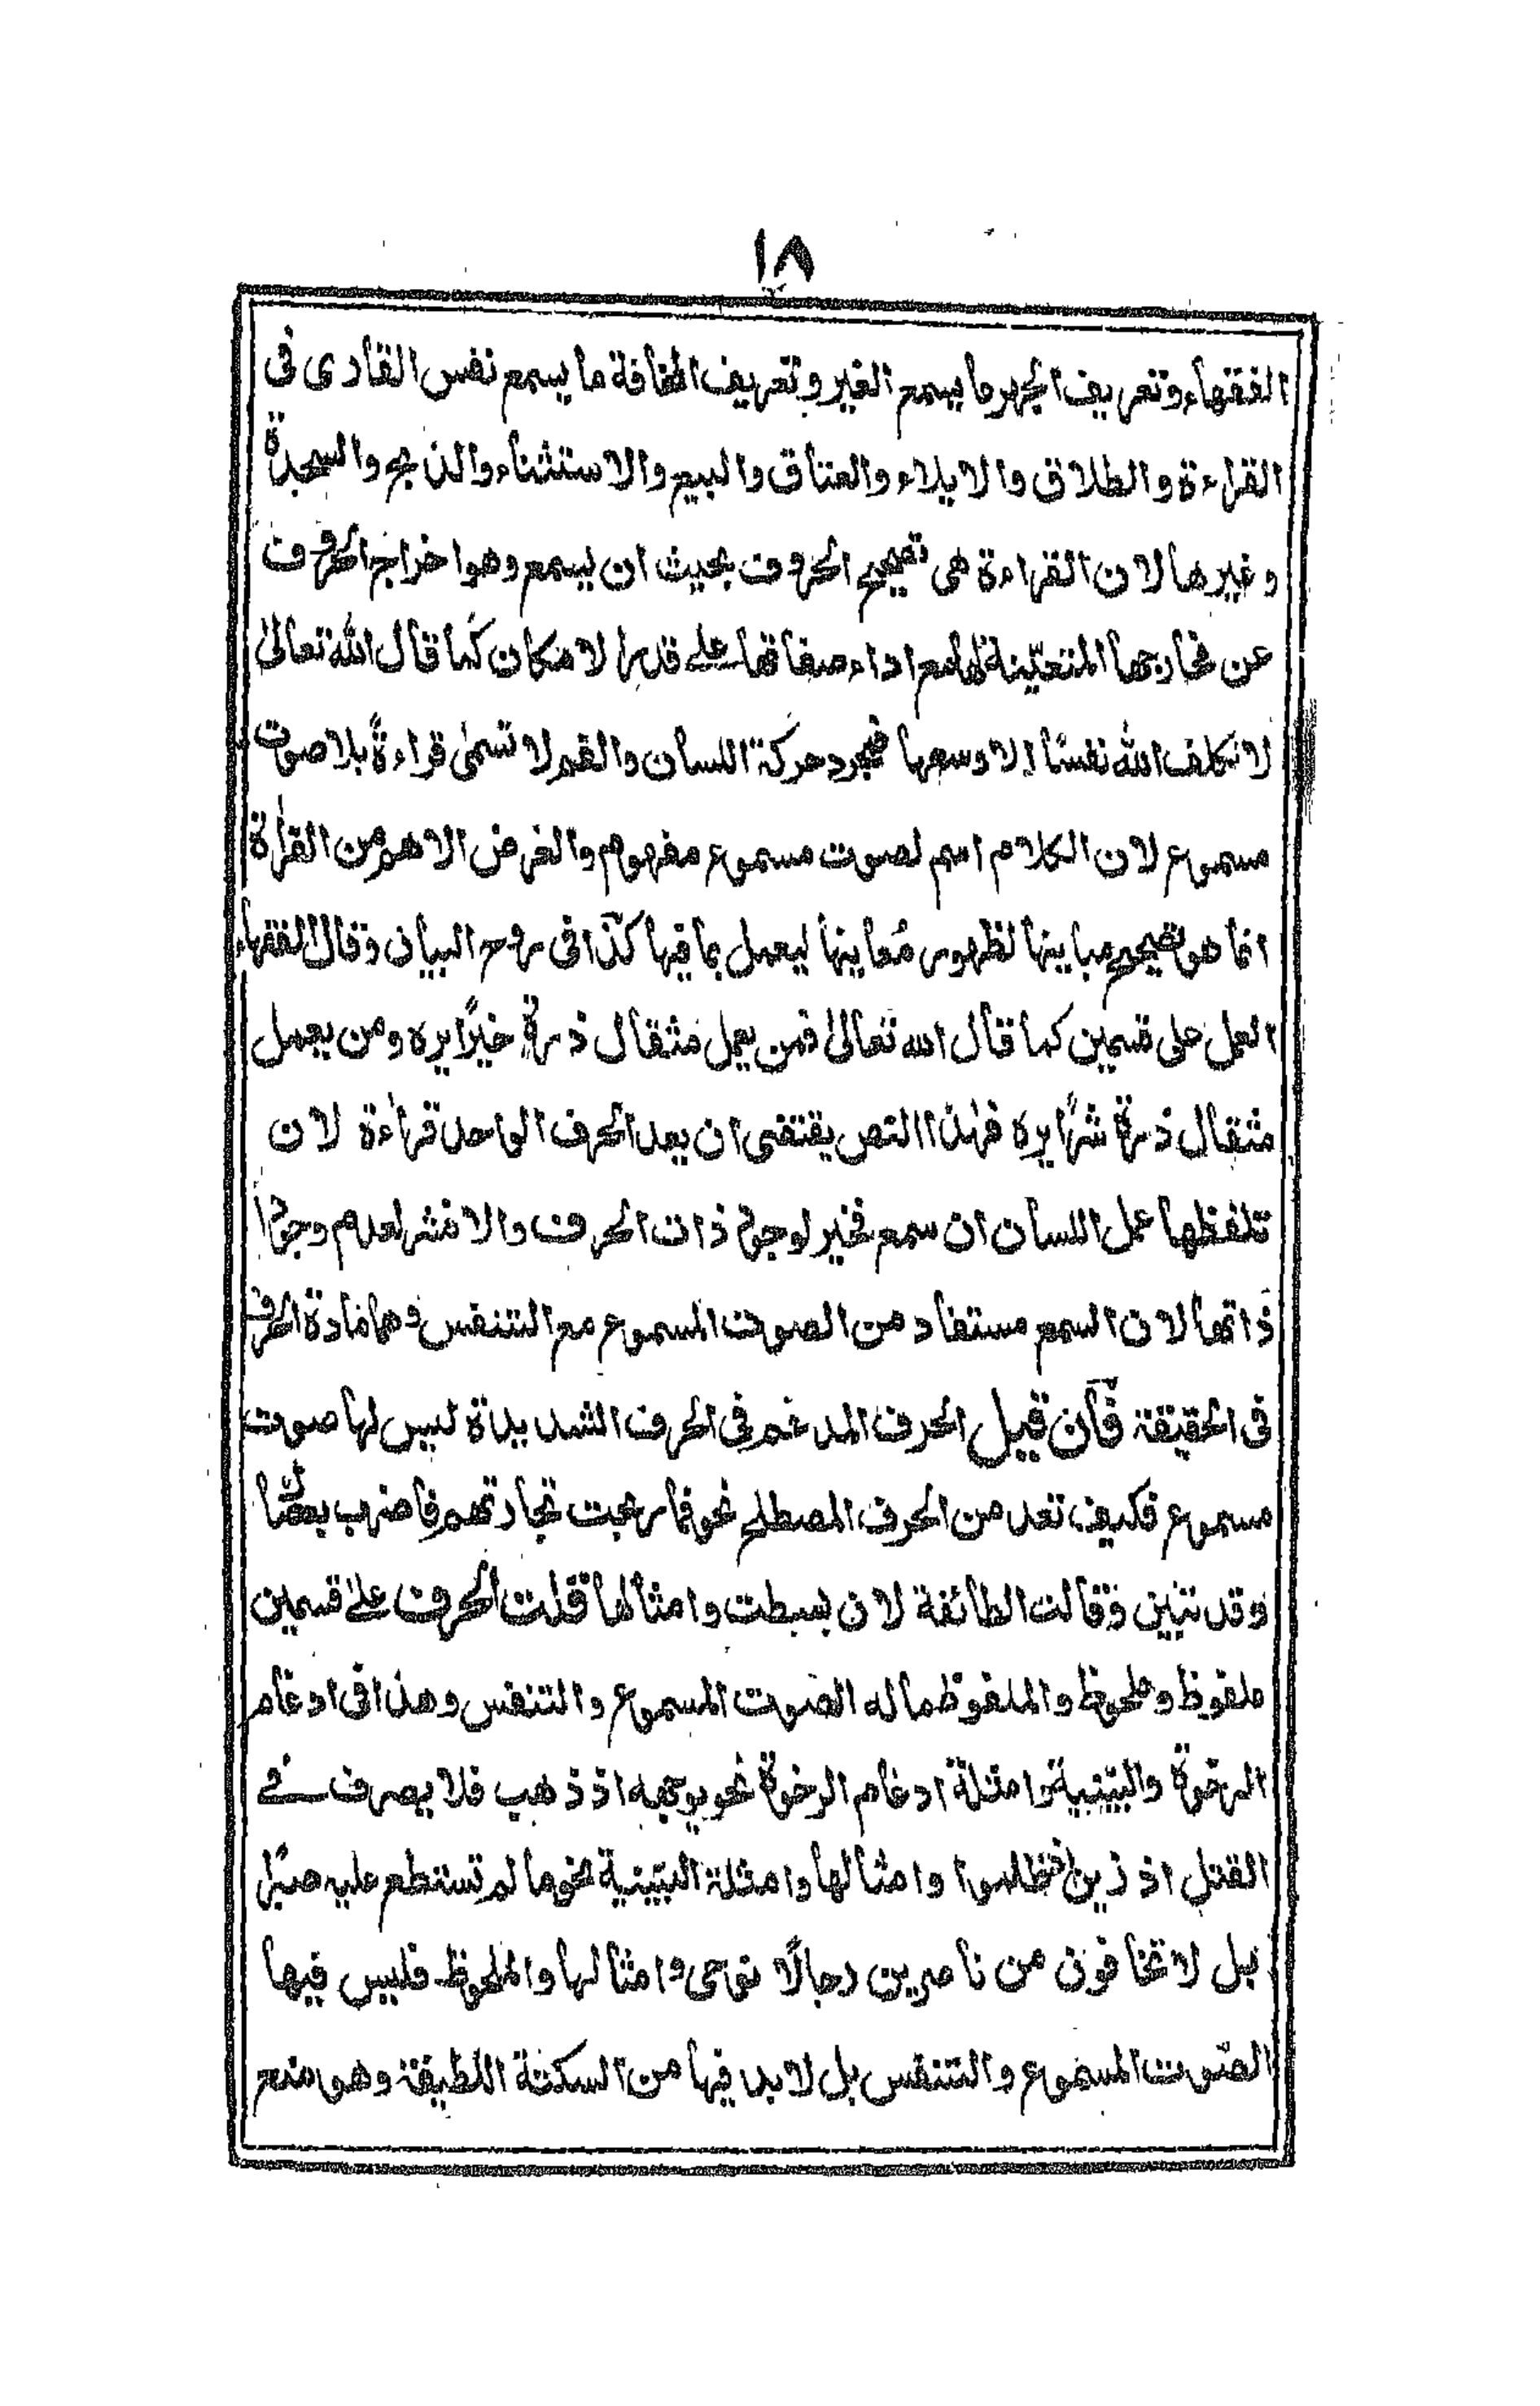 ١٨
الفقهاء وتعريف الجهر ما يسمع الغير وتعريف المخافة ما يسمع نفس القارى فى
القراءة والطلاق والايلاء والعتاق والبيع والاستثناء والذبح والسجدة
وغيرها لان القراءة هى تصحيح الحروف بحيث ان يسمع وهو اخراج الحروف
عن مخارجها المتعيّنة لها مع اداء صفاتها على قدر الامكان كما قال الله تعالىٰ
لا نكلف الله نفسًا الا وسعها فمجرد حركة اللسان والفم لا تسمىٰ قراءةً بلا صوت
مسموع لان الكلام اسم لصوت مسموع مفهوم والغرض الاهم من القراٰة
انما هو تصحيح مباينها لظهور مُعاينها ليعمل بما فيها كذا فى روح البيان وقال الفقهاء
العمل على قسمين كما قال الله تعالىٰ فمن يعمل مثقال ذرةٍ خيرًا يره ومن يعمل
مثقال ذرة شرًا يره فهٰذا النص يقتضى ان يعد الحرف الواحد قراٰءة لان
تلفظها عمل اللسان ان سمع فخير لوجود ذات الحرف والا فشر لعدم وجود
ذاتها لان السمع مستفاد من الصوت المسموع مع التنفس وهما مادة الحرف
فى الحقيقة فآن قيل الحرف المدغم فى الحرف الشديدة ليس لها صوت
مسموع فكيف تعد من الحرف المصطلح نحو فما ربحت تجارتهم فاضرب بعصا
وقد تبين وقالت الطائفة لان بسطت وامثالها قلت الحرف علىٰ قسمين
ملفوظ وملحوظ والملفوظ ما له الصوت المسموع والتنفس وهذا فى ادغام
الرخوة والبَيّنية وامثلة ادغام الرخوة نحو يوجهه اذ ذهب فلا يصرف فے
القتل اذ زين اذ ظلموا وامثالها وامثلة البَيّنية نحو ما لم تستطع عليه صبرًا
بل لا تخافون من ناصرين رجالًا نوحى وامثالها والملحوظ فليس فيها
الصّوت المسموع والتنفس بل لا بد فيها من السكتة اللطيفة وهو منع